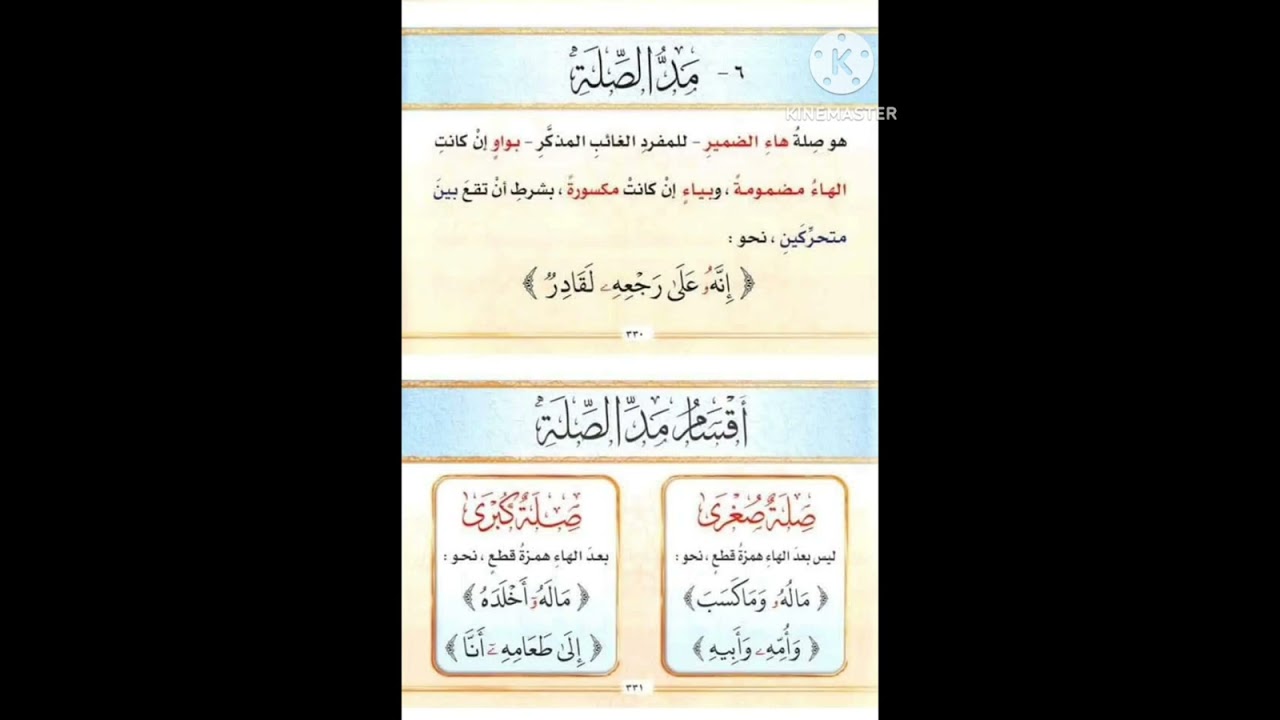 ٦ - مَدُّ الصِّلَةِ
K
KINEMASTER
هو صِلةُ هاءِ الضميرِ - للمفردِ الغائبِ المذكَّرِ - بواوٍ إنْ كانتِ
الهاءُ مضمومةً ، وبياءٍ إنْ كانتْ مكسورةً ، بشرطِ أنْ تقعَ بينَ
متحرِّكَينِ ، نحو :
﴿ إِنَّهُۥ عَلَىٰ رَجْعِهِۦ لَقَادِرٌ ﴾
٣٣٠
أَقْسَامُ مَدِّ الصِّلَةِ
صِلَةٌ صُغْرَى
ليس بعدَ الهاءِ همزةُ قطعٍ ، نحو :
﴿ مَالُهُۥ وَمَا كَسَبَ ﴾
﴿ وَأُمِّهِۦ وَأَبِيهِ ﴾
صِلَةٌ كُبْرَى
بعدَ الهاءِ همزةُ قطعٍ ، نحو :
﴿ مَالَهُۥٓ أَخْلَدَهُ ﴾
﴿ إِلَىٰ طَعَامِهِۦٓ أَنَّا ﴾
٣٣١